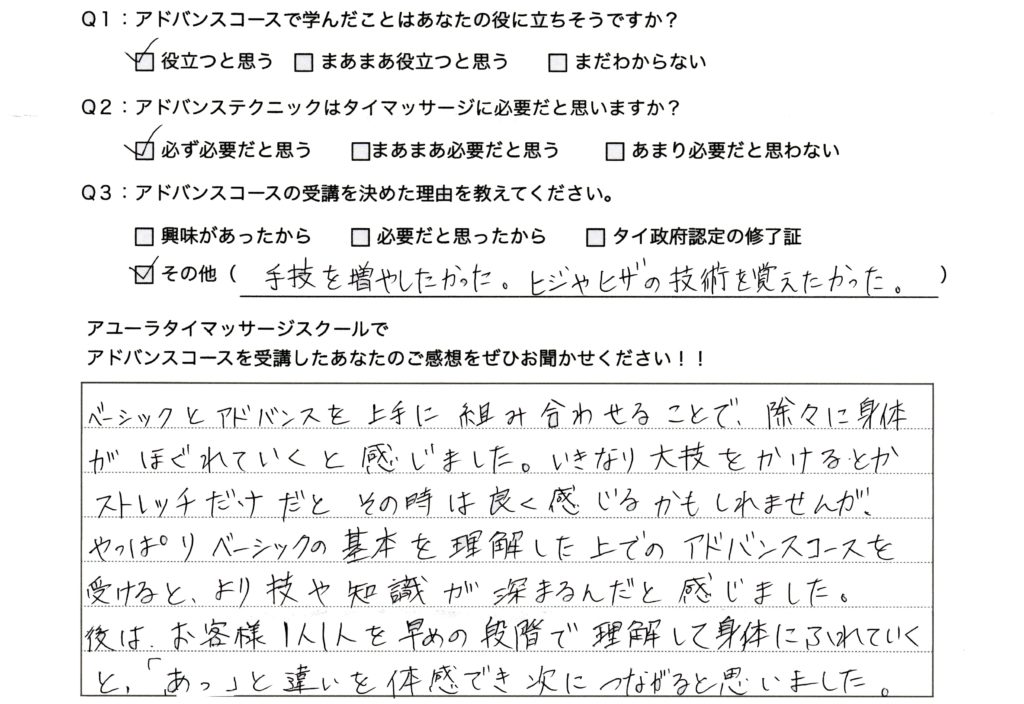 Q1：アドバンスコースで学んだことはあなたの役に立ちそうですか？
役立つと思う まあまあ役立つと思う まだわからない
Q2：アドバンステクニックはタイマッサージに必要だと思いますか？
必ず必要だと思う まあまあ必要だと思う あまり必要だと思わない
Q3：アドバンスコースの受講を決めた理由を教えてください。
興味があったから 必要だと思ったから タイ政府認定の修了証
その他（ 手技を増やしたかった。ヒジやヒザの技術を覚えたかった。 ）
アユーラタイマッサージスクールで
アドバンスコースを受講したあなたのご感想をぜひお聞かせください！！
ベーシックとアドバンスを上手に組み合わせることで、除々に身体
がほぐれていくと感じました。いきなり大技をかけるとか
ストレッチだけだとその時は良く感じるかもしれませんが、
やっぱりベーシックの基本を理解した上でのアドバンスコースを
受けると、より技や知識が深まるんだと感じました。
後は、お客様1人1人を早めの段階で理解して身体にふれていく
と、「あっ」と違いを体感でき次につながると思いました。